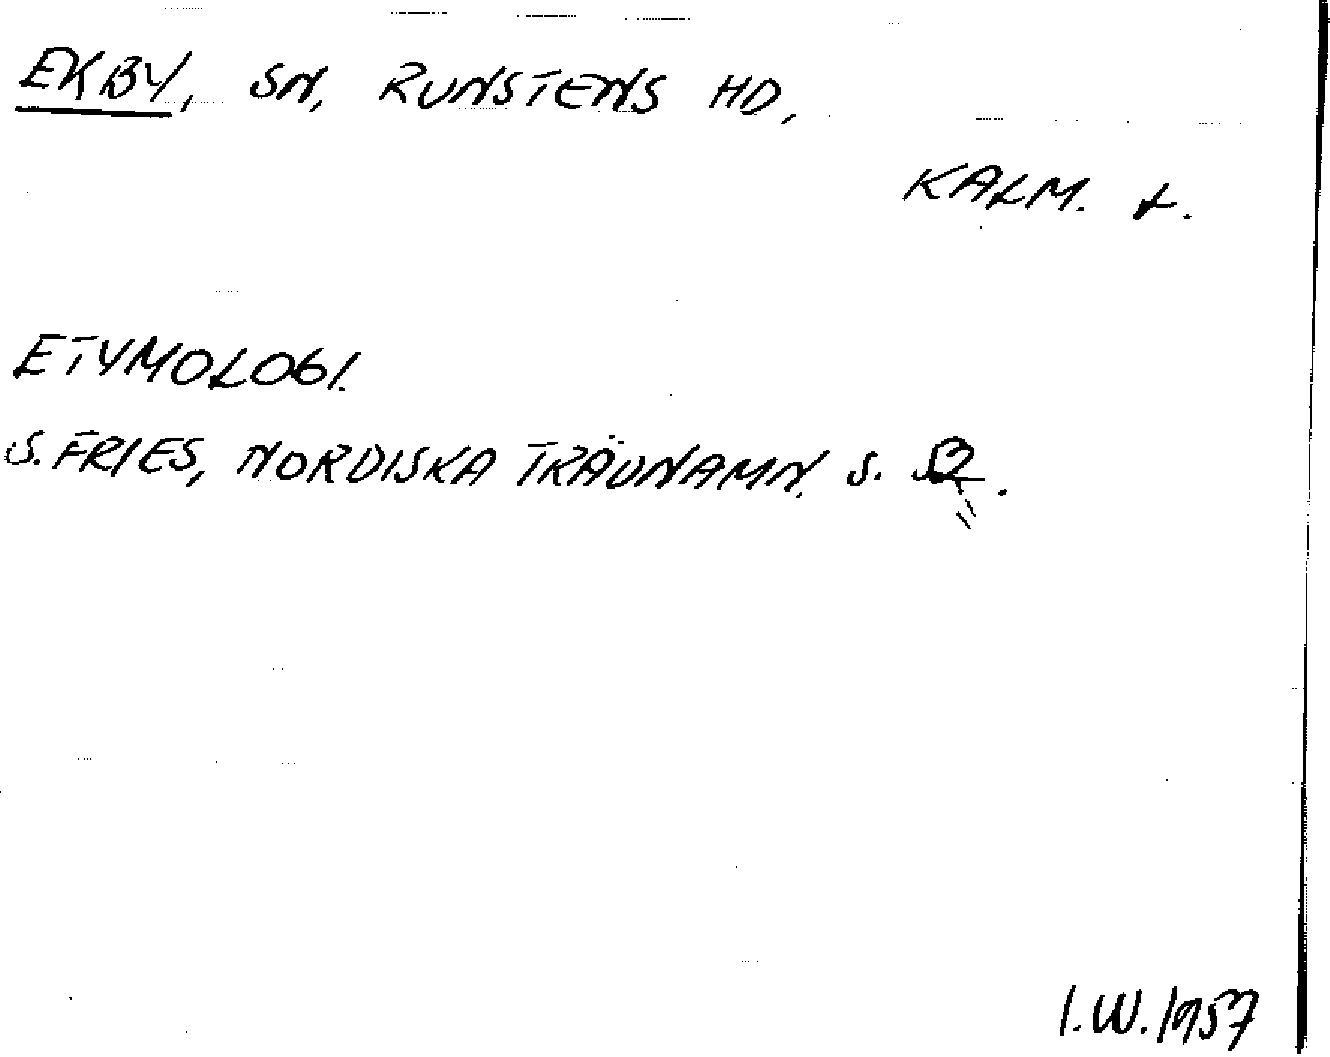 EKBY, SN, RUNSTENS HD,
KALM. L.
ETYMOLOGI.
S. FRIES, NORDISKA TRÄDNAMN. S. 52.
I.W. 1957